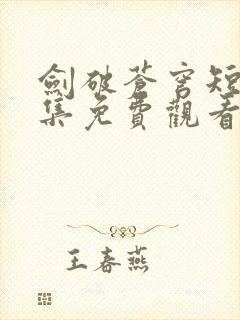 劍破蒼穹短
集免費觀看
王春燕